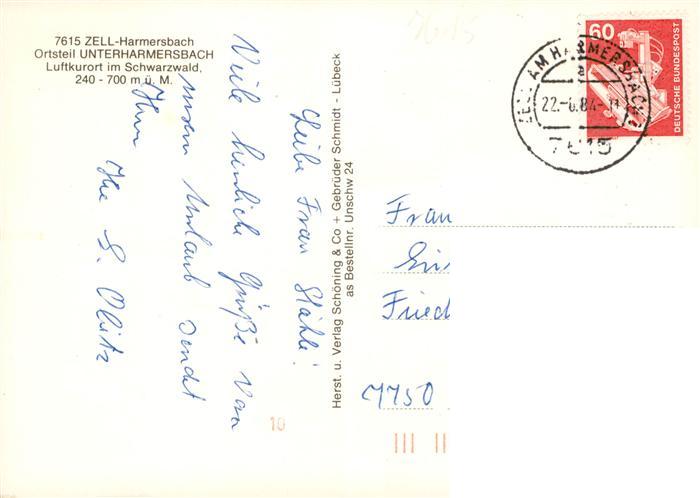 7615 ZELL-Harmersbach
Ortsteil UNTERHARMERSBACH
Luftkurort im Schwarzwald,
240 - 700 m ü. M.
Liebe Frau Stähle!
Viele herzliche Grüße von
unserem Urlaub sendet
Ihnen
Ihre S. Olritz
Herst. u. Verlag Schöning & Co + Gebrüder Schmidt - Lübeck
as Bestellnr. Unschw 24
60
DEUTSCHE BUNDESPOST
ZELL AM HARMERSBACH 2
a
22.-6.84-11
7615
7615
Frau
Fried
7750
10